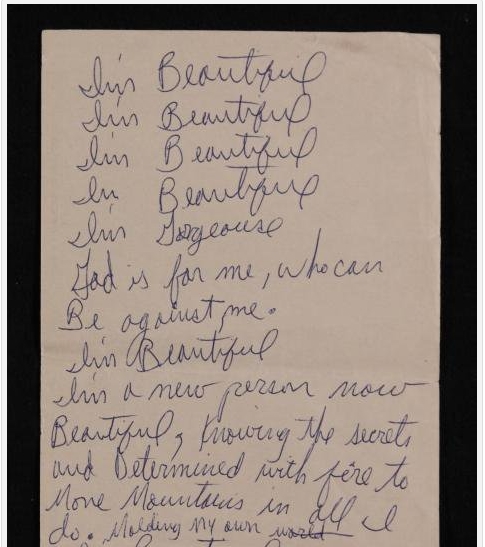 I'm Beautiful
I'm Beautiful
I'm Beautiful
I'm Beautiful
I'm Gorgeouse
God is for me, who can
Be against me.
I'm Beautiful
I'm a new person now
Beautiful, Knowing the secrets
and Determined with fire to
Move Mountains in all I
do. Molding My own world